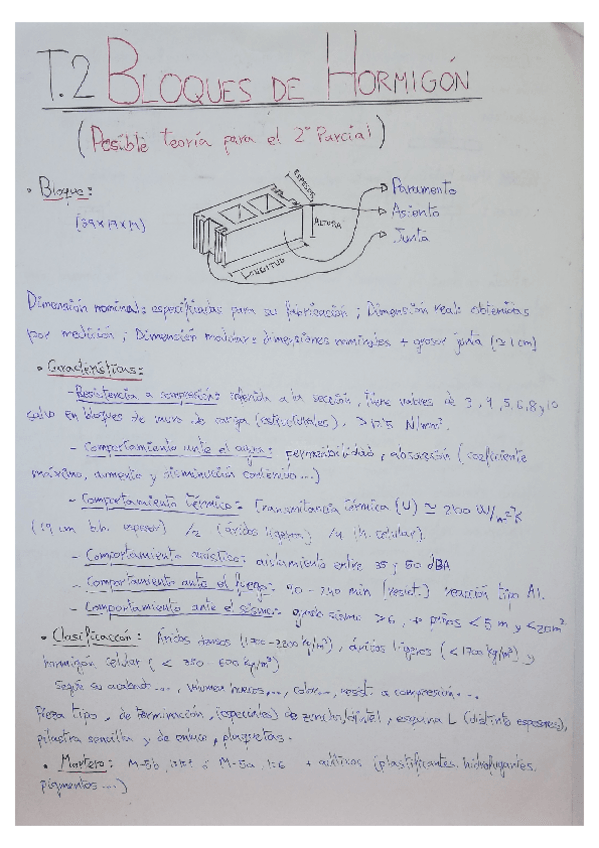 T.2 BLOQUES DE HORMIGÓN
(Posible teoría para el 2º Parcial)
• Bloque:
(39x19x19)
ESPESOR
ALTURA
LONGITUD
Paramento
Asiento
Junta
Dimensión nominal: especificadas para su fabricación ; Dimensión real: obtenidas
por medición ; Dimensión modular: dimensiones nominales + grosor junta (≃ 1 cm)
• Características:
- Resistencia a compresión: referida a la sección, tiene valores de 3, 4, 5, 6, 8 y 10
salvo en bloques de muro de carga (estructurales), > 12'5 N/mm².
- Comportamiento ante el agua: permeabilidad, absorción (coeficiente
máximo, aumento y disminución contenido...)
- Comportamiento térmico: Transmitancia térmica (U) ≃
(19 cm b.h. espesor) /2 (áridos ligeros) /4 (h. celular).
- Comportamiento acústico: aislamiento entre 35 y 50 dBA
- Comportamiento ante el fuego: min (resist.) reacción tipo A1.
- Comportamiento ante el sismo: grado sismo > 6, < 5 m y < 20 m²
• Clasificación: Áridos densos (1700-2200 kg/m³), áridos ligeros (< 1700 kg/m³) y
hormigón celular (< kg/m³)
Según su acabado..., volumen huecos..., color..., resist. a compresión...
Pieza tipo, de terminación, (especiales) de zuncho/dintel, esquina L (distinto espesores),
pilastra sencilla y de enlace, plaquetas.
• Mortero: M-5b, ó M-5a, 1:6 + aditivos (plastificantes, hidrofugantes,
pigmentos...)